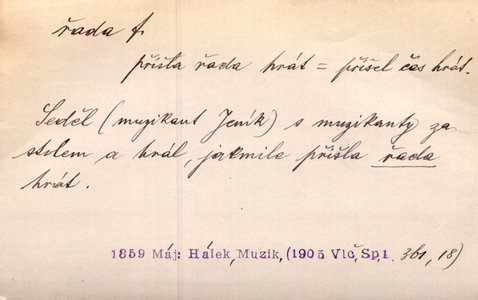 řada f.
přišla řada hrát = přišel čas hrát.
Seděl (muzikant Jeník) s muzikanty za
stolem a hrál, jakmile přišla řada
hrát.
1859 Máj: Hálek, Muzik, (1905 Vlč, Sp1. 361, 18)